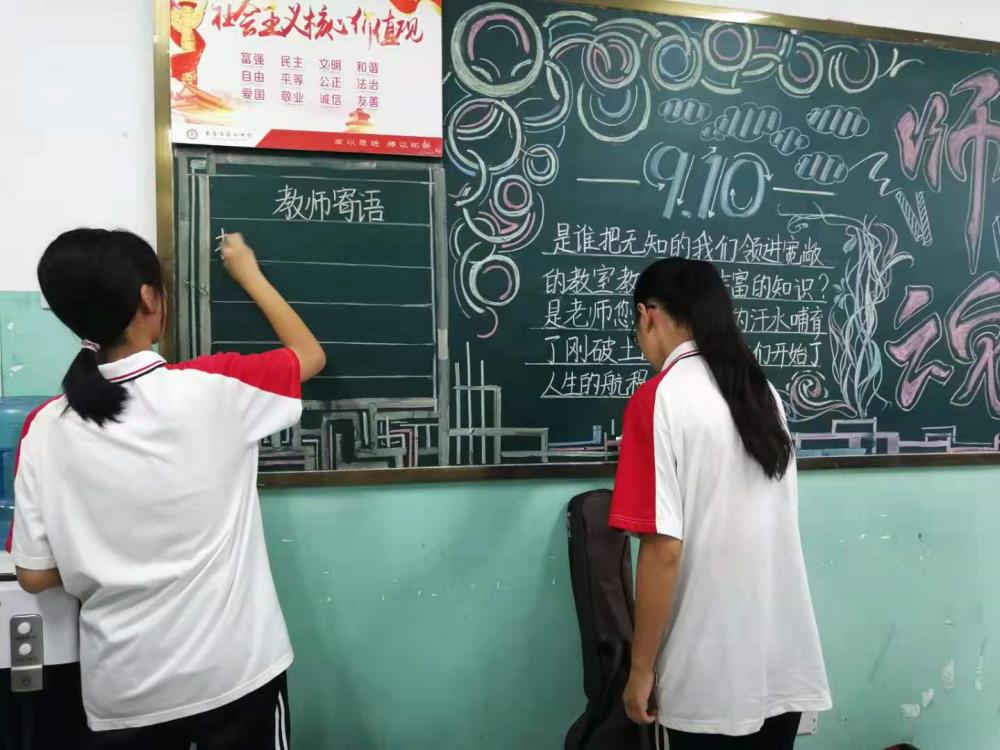 社会主义核心价值观
富强 民主 文明 和谐
自由 平等 公正 法治
爱国 敬业 诚信 友善
教师寄语
9.10
是谁把无知的我们领进宽敞
的教室教 富的知识?
是老师您 的汗水哺育
了刚破土 们开始了
人生的航程
师
魂